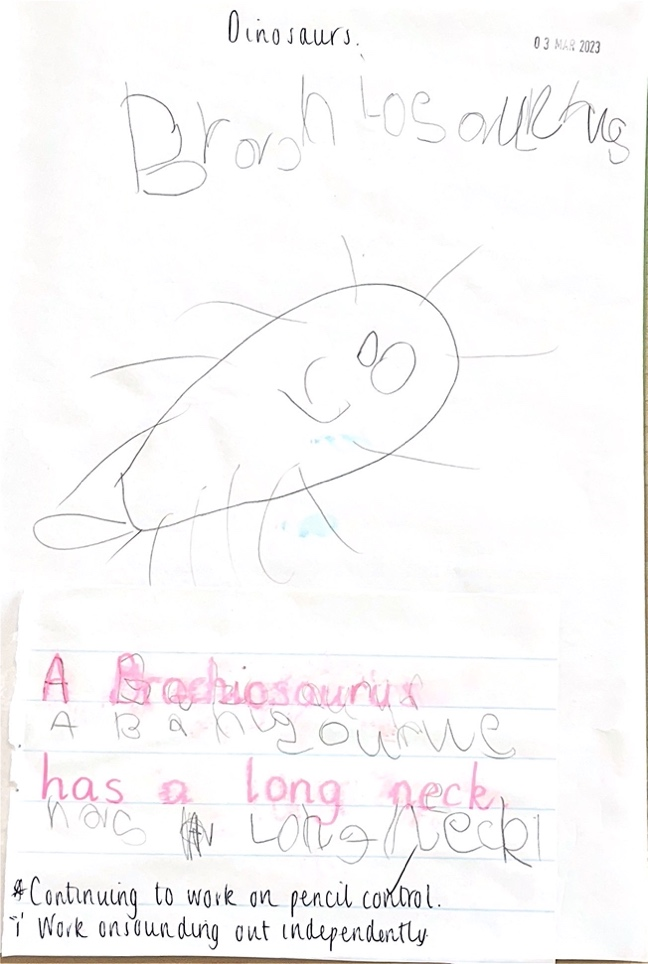 Dinosaurs.
03 MAR 2023
Brachiosaurus
A Brachiosaurus
A
has a long neck.
has a Long Neck
*Continuing to work on pencil control.
i Work onsounding out independently